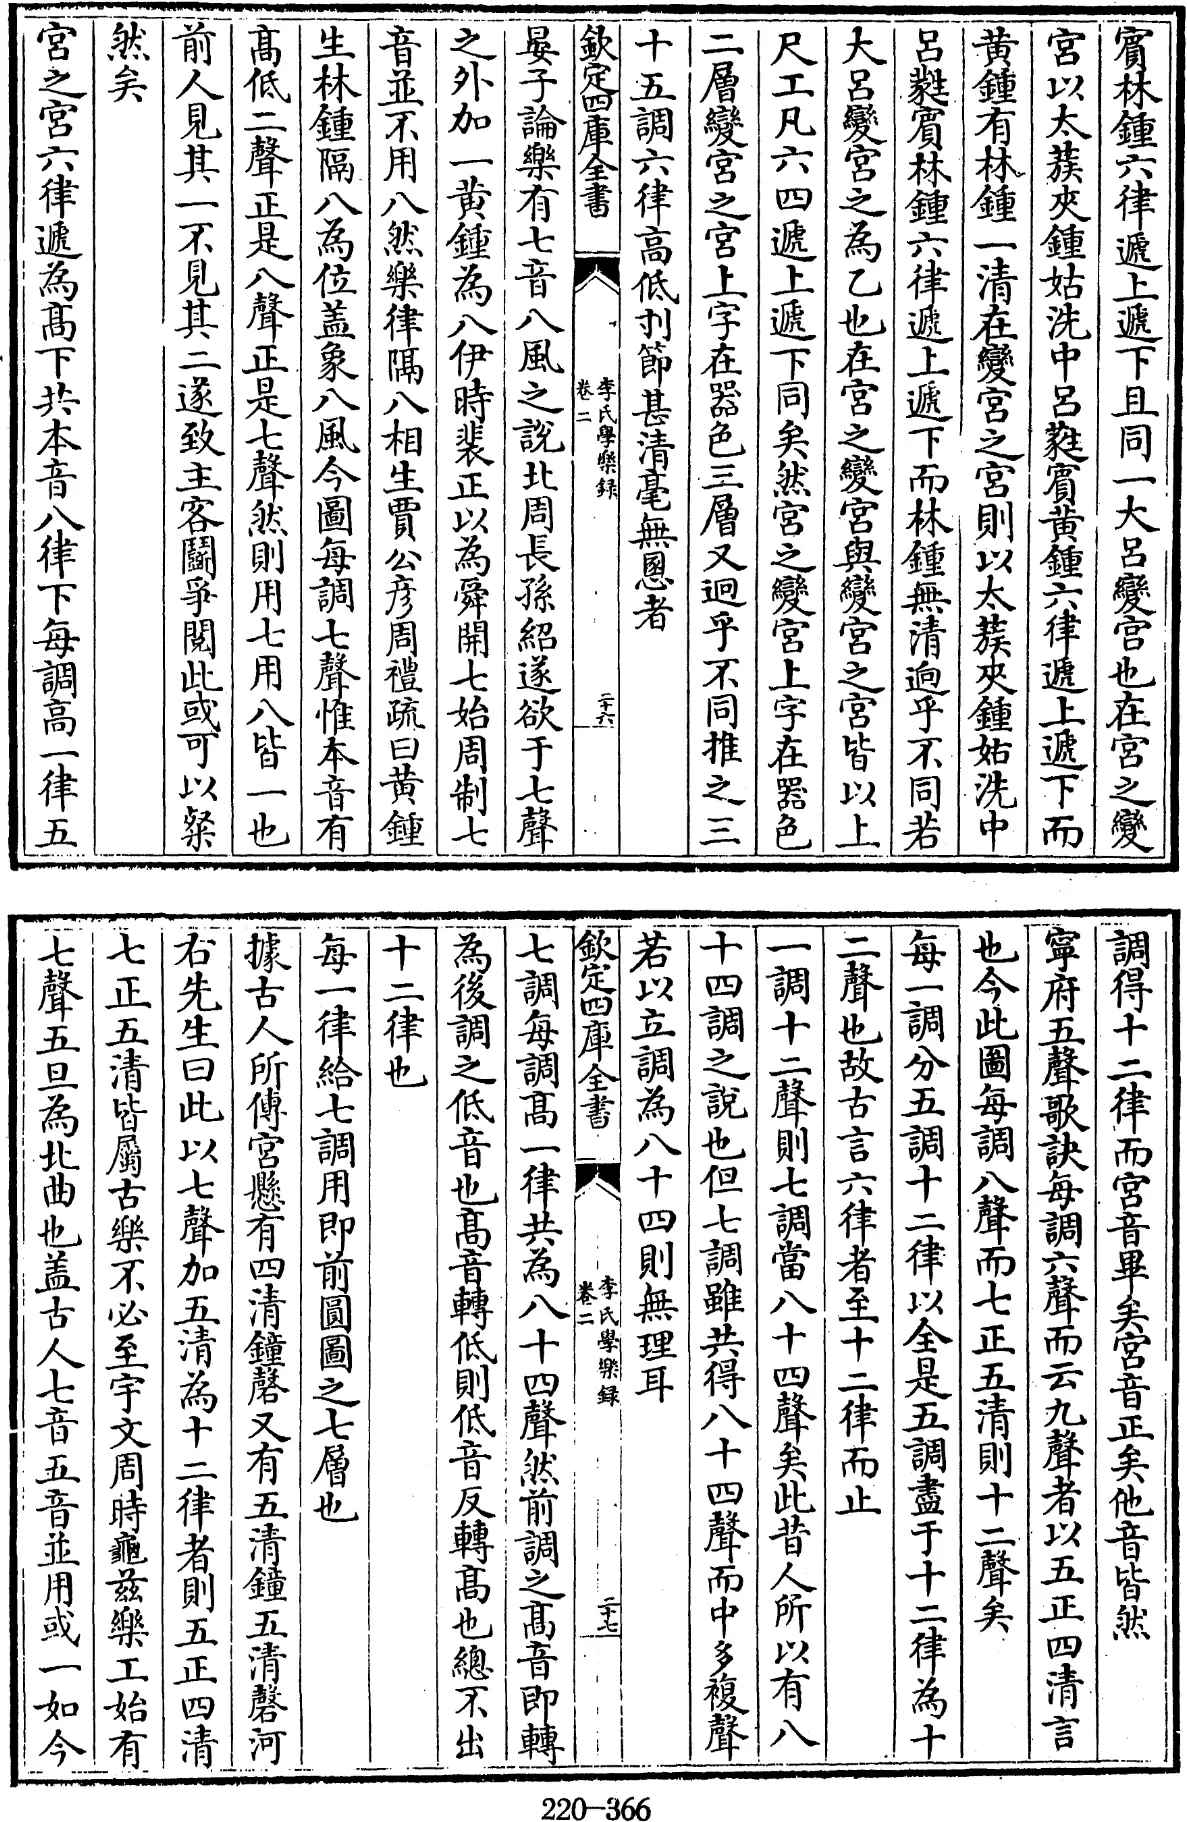 賔林鍾六律遞上遞下且同一大呂變宫也在宫之變
宫以太蔟夾鍾姑洗中呂蕤賔黄鍾六律遞上遞下而
黄鍾有林鍾一清在變宫之宫則以太蔟夾鍾姑洗中
呂蕤賔林鍾六律遞上遞下而林鍾無清逈乎不同若
大呂變宫之為乙也在宫之變宫與變宫之宫皆以上
尺工凡六四遞上遞下同矣然宫之變宫上字在器色
二層變宫之宫上字在器色三層又逈乎不同推之三
十五調六律高低刌節甚清毫無慁者
欽定四庫全書
李氏學樂録
卷二
二十六
晏子論樂有七音八風之說北周長孫紹遂欲于七聲
之外加一黄鍾為八伊時裴正以為舜開七始周制七
音並不用八然樂律隔八相生賈公彦周禮疏曰黄鍾
生林鍾隔八為位盖象八風今圖每調七聲惟本音有
髙低二聲正是八聲正是七聲然則用七用八皆一也
前人見其一不見其二遂致主客鬭爭閱此或可以粲
然矣
宫之宫六律遞為髙下共本音八律下每調高一律五
調得十二律而宫音畢矣宫音正矣他音皆然
寧府五聲歌訣每調六聲而云九聲者以五正四清言
也今此圖每調八聲而七正五清則十二聲矣
每一調分五調十二律以全是五調盡于十二律為十
二聲也故古言六律者至十二律而止
一調十二聲則七調當八十四聲矣此昔人所以有八
十四調之說也但七調雖共得八十四聲而中多複聲
若以立調為八十四則無理耳
欽定四庫全書
李氏學樂録
卷二
二十七
七調每調髙一律共為八十四聲然前調之髙音即轉
為後調之低音也髙音轉低則低音反轉髙也總不出
十二律也
每一律給七調用即前圓圖之七層也
據古人所傳宫懸有四清鐘磬又有五清鐘五清磬河
右先生曰此以七聲加五清為十二律者則五正四清
七正五清皆屬古樂不必至宇文周時龜兹樂工始有
七聲五旦為北曲也盖古人七音五音並用或一如今
220-366